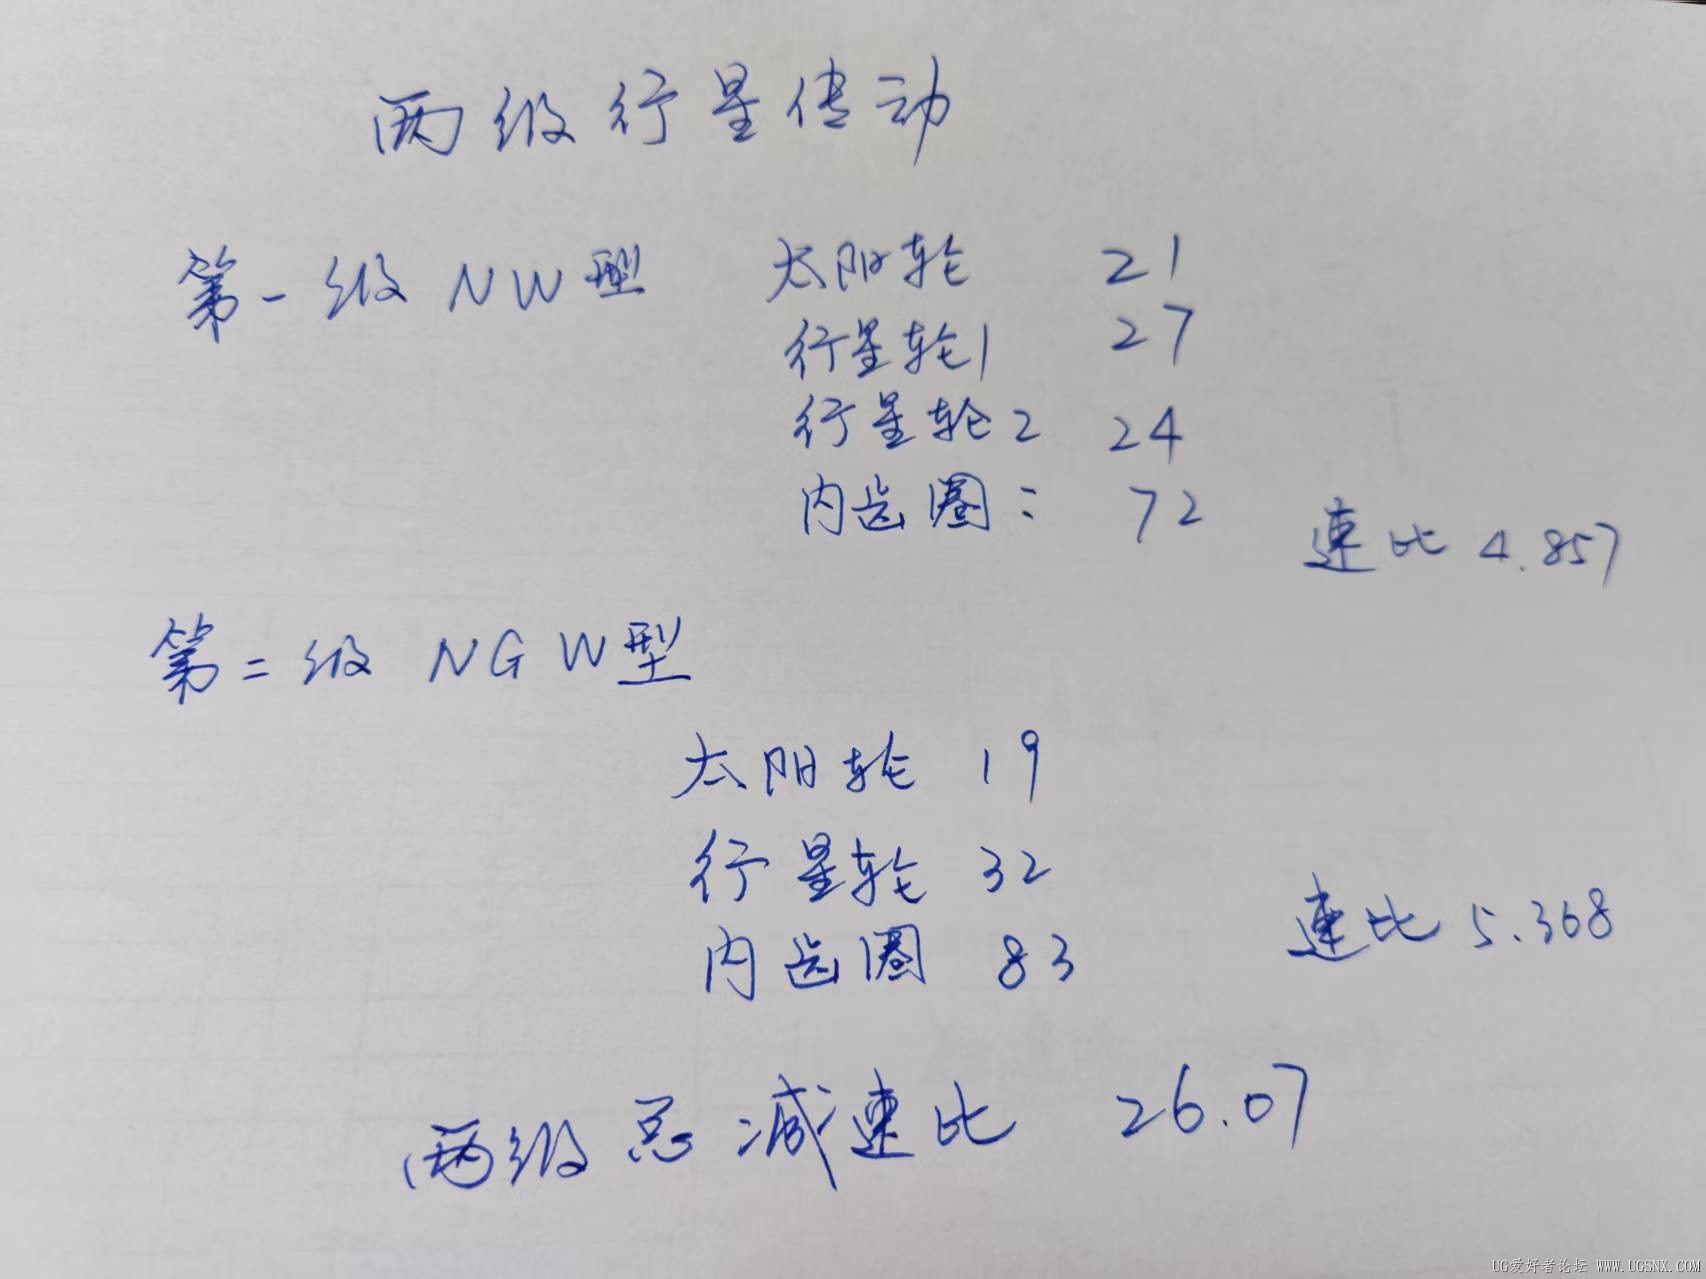 两级行星传动
第一级 NW型 太阳轮 21
行星轮1 27
行星轮2 24
内齿圈: 72
速比 4.857
第二级 NGW型
太阳轮 19
行星轮 32
内齿圈 83
速比 5.368
两级总减速比 26.07
UG爱好者论坛 WWW.UGSNX.COM